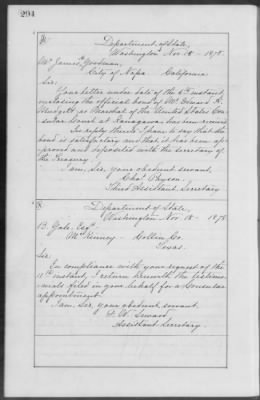 294
Department of State,
Washington Nov 18 - 1878.
Mr James Goodman,
City of Napa California.
Sir:
Your letter under date of the 6th instant,
enclosing the official bond of Mr Edward R.
as Marshal of the United States Con-
sular Court at Kanagawa has been received.
In reply thereto I have to say that the
bond is satisfactory and that it has been ap-
proved and deposited with the secretary of
the Treasury.
I am, Sir, your obedient servant,
Chas Payson,
Third Assistant Secretary
Department of State,
Washington Nov 18 - 1878
B. Gale, Esqr
McKinney - Collin Co
Texas.
Sir:
In compliance with your request of the
11th instant, I return herewith the testimo-
nials filed in your behalf for a Consular
appointment.
I am, Sir, your obedient servant,
F. W. Seward
Assistant Secretary.